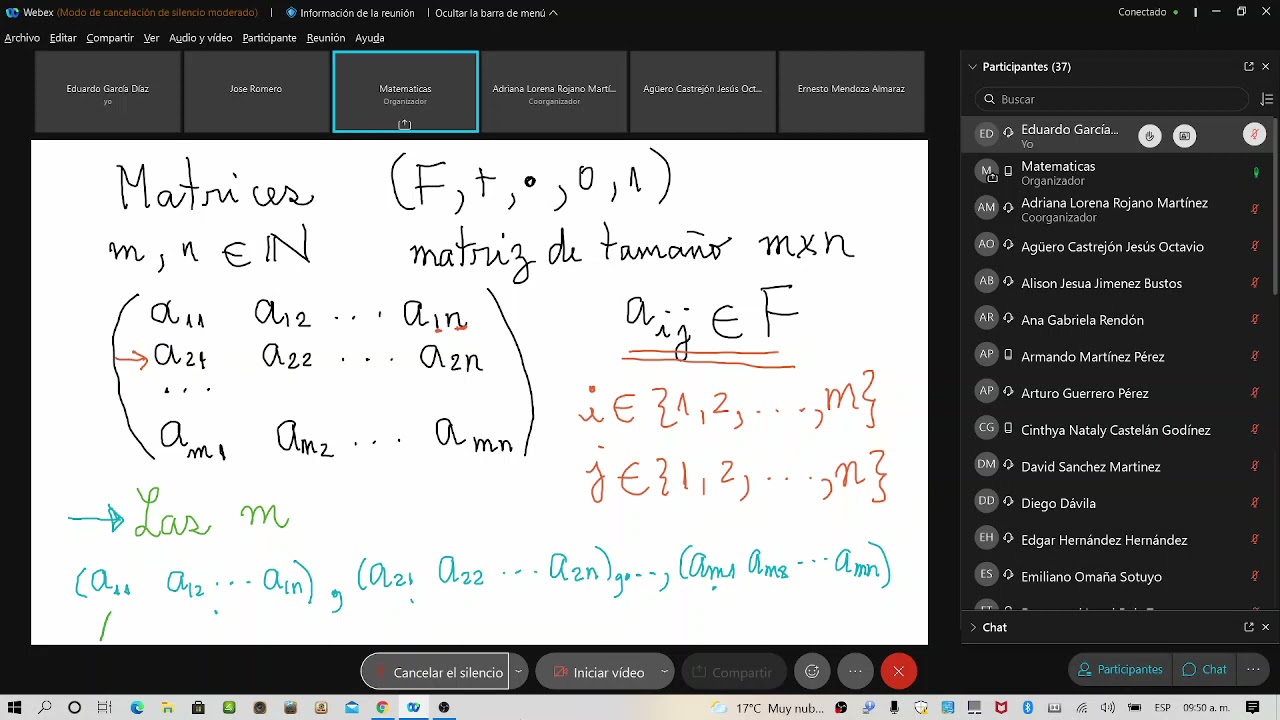 Webex (Modo de cancelación de silencio moderado) Información de la reunión Ocultar la barra de menú Conectado
Archivo Editar Compartir Ver Audio y vídeo Participante Reunión Ayuda
Eduardo García Díaz
yo
Jose Romero
Matematicas
Organizador
Adriana Lorena Rojano Martí...
Coorganizador
Agüero Castrejón Jesús Oct...
Ernesto Mendoza Almaraz
Matrices (F, +, •, 0, 1)
m, n ∈ ℕ matriz de tamaño m×n
a11 a12 ... a1n
a21 a22 ... a2n
...
am1 am2 ... amn
aij ∈ F
i ∈ {1, 2, ..., m}
j ∈ {1, 2, ..., n}
→ Las m
(a11 a12 ... a1n), (a21 a22 ... a2n), ..., (am1 am2 ... amn)
Participantes (37)
Buscar
ED Eduardo García...
Yo
M Matematicas
Organizador
AM Adriana Lorena Rojano Martínez
Coorganizador
AO Agüero Castrejón Jesús Octavio
AB Alison Jesua Jimenez Bustos
AR Ana Gabriela Rendón
AP Armando Martínez Pérez
AP Arturo Guerrero Pérez
CG Cinthya Nataly Castelán Godínez
DM David Sanchez Martinez
DD Diego Dávila
EH Edgar Hernández Hernández
ES Emiliano Omaña Sotuyo
Chat
Cancelar el silencio Iniciar vídeo Compartir
Participantes Chat
17°C Muy nub... ESP 09:50 a. m.